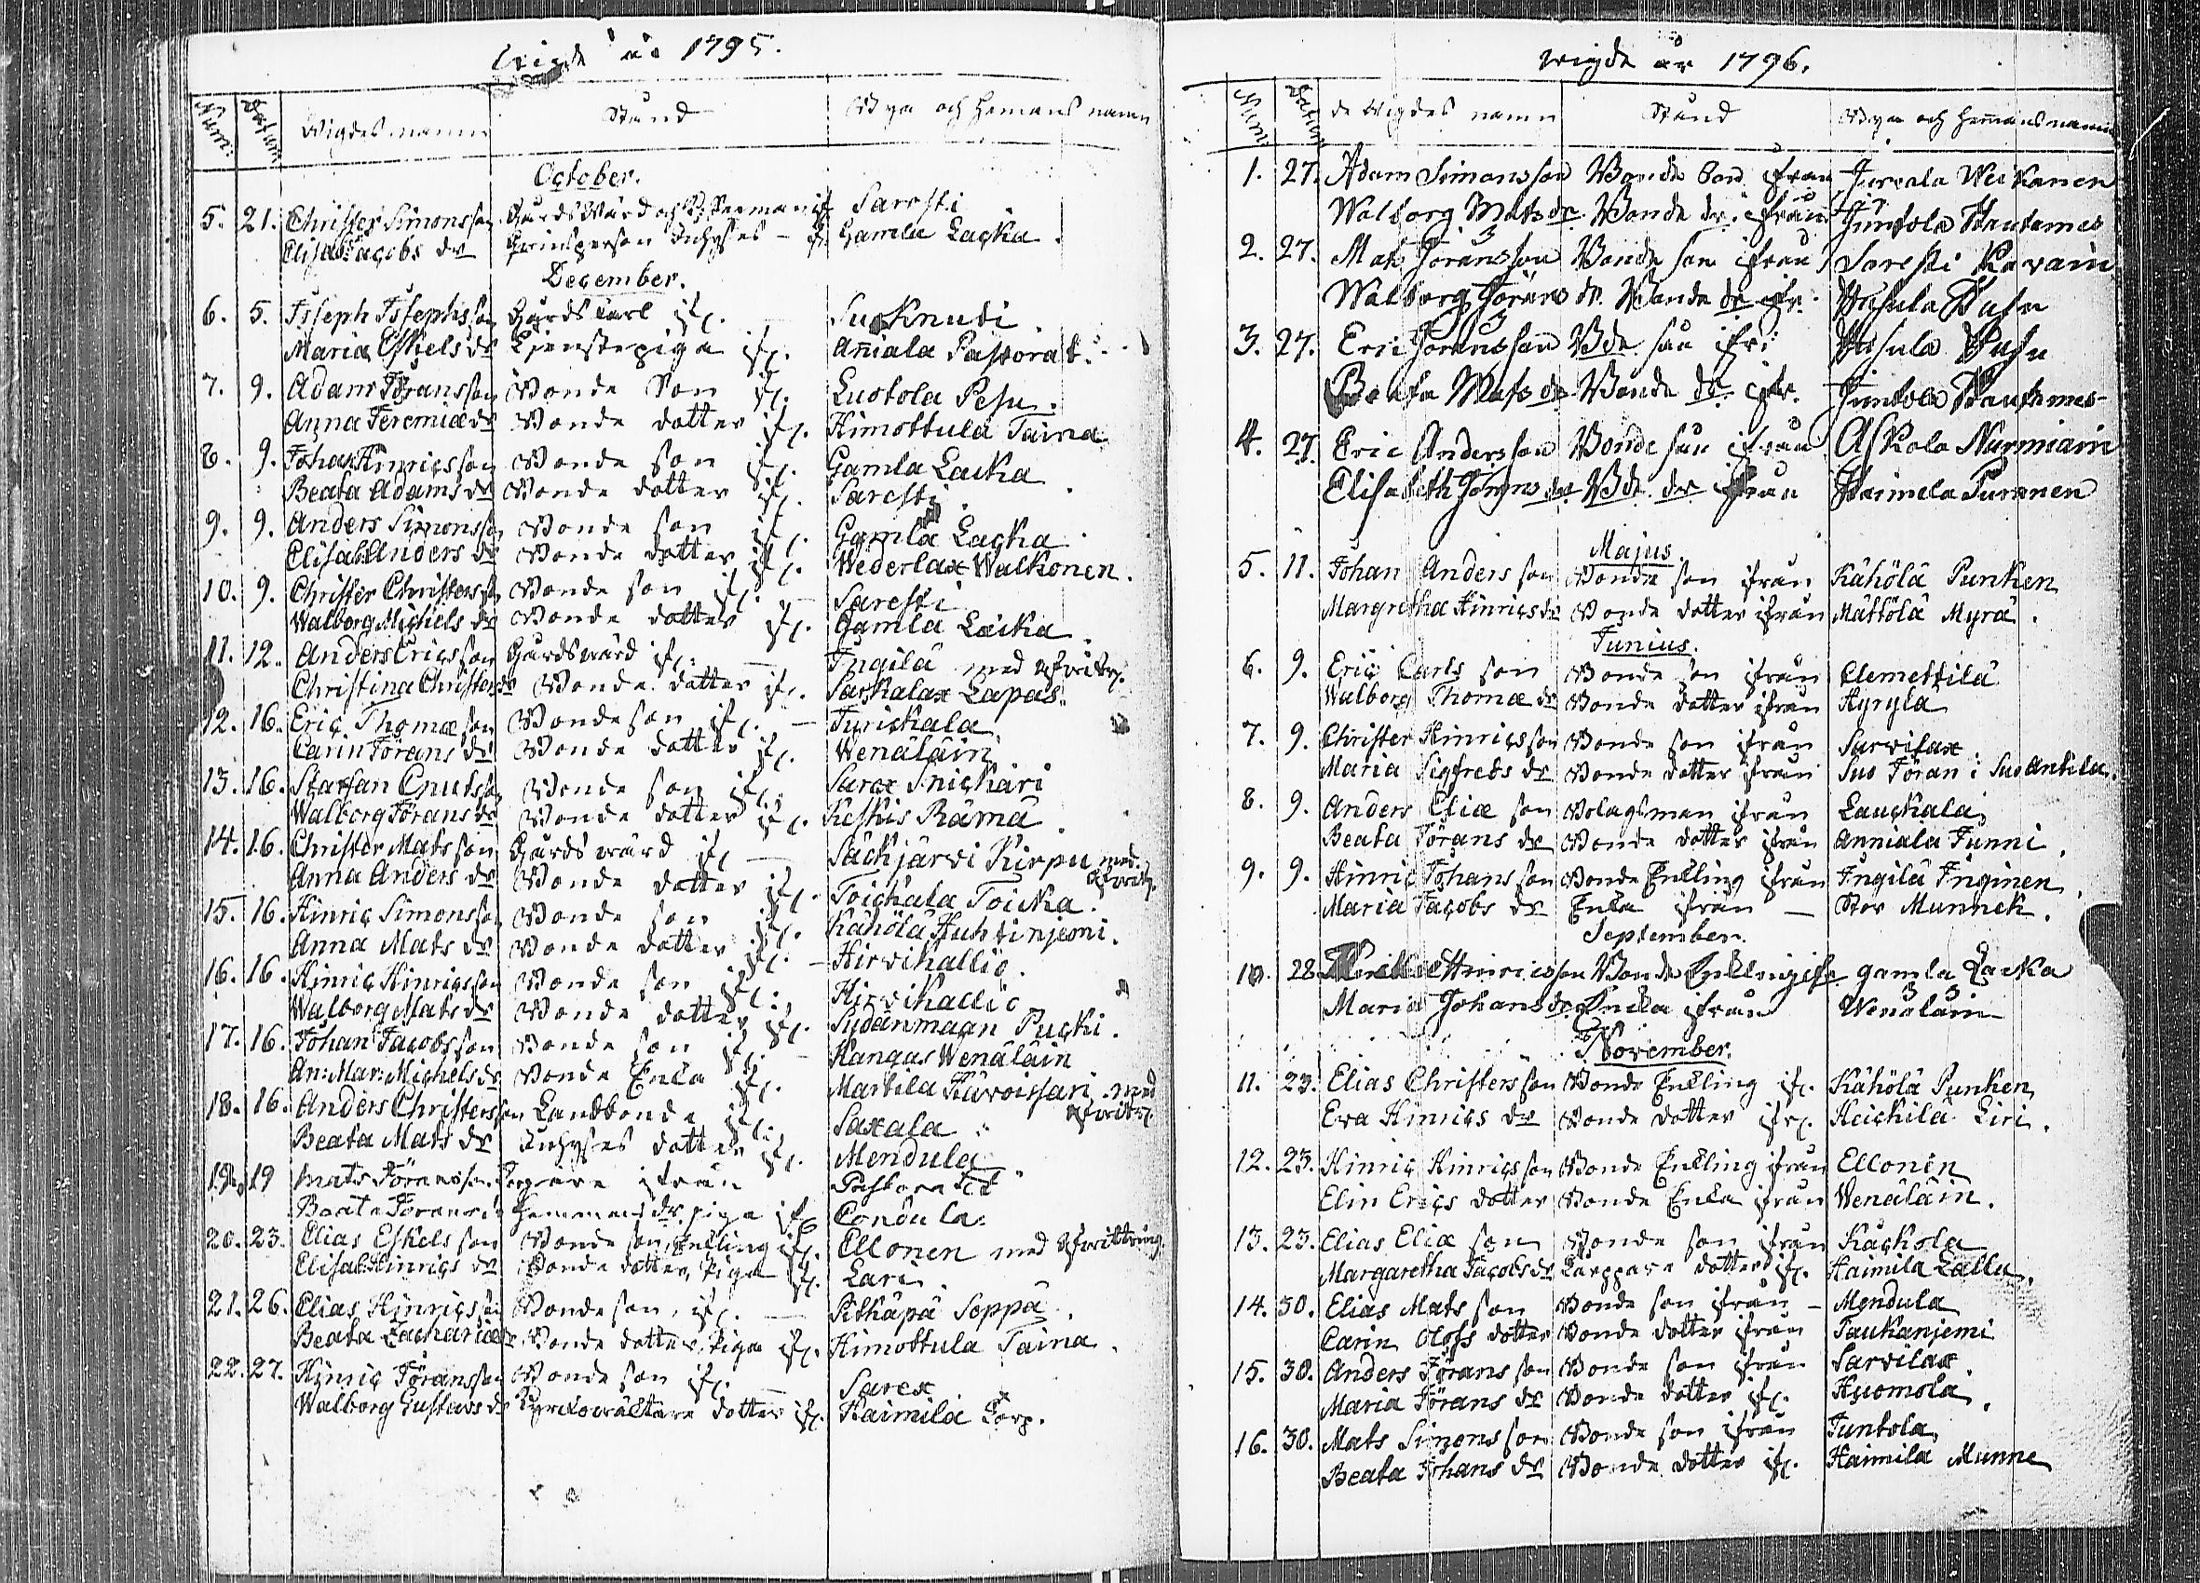 wigde år 1795.
Num: Datum Wigdes namn Stånd Bya och Hemans namn
October.
5. 21. Christer Simonsson Gårdswärd och Säärstis
Elisab: Jacobs dr Inhyses Gamla Lacka
December.
6. 5. Joseph Josephsson Gårds Karl if. Suoknuti
Maria Eskels dr Tjenstepiga if. Aniala Pastorat.
7. 9. Adam Jöransson Bonde Son if. Luotola Pesu.
Anna Jeremiæ dr Bonde dotter if. Himottula Taina
8. 9. Johan Hinricsson Bonde son if. Gamla Lacka
Beata Adams dr Bonde dotter if. Saresti
9. 9. Anders Simonsson Bonde son if. Gamla Lacka
Elisab: Anders dr Bonde dotter if. Wederlax Walkonen.
10. 9. Christer Christersson Bonde son if. Saresti
Walborg Michels dr Bonde dotter if. Gamla Lacka.
11. 12. Anders Ericsson Gårdswärd if. Ingilä med afvitr.
Christina Christers dr Bonde dotter if. Sarkalax Lapas.
12. 16. Eric Thomæ son Bonde son if. — Turickala
Carin Jörans dr Bonde dotter if. Wenäläin
13. 16. Staffan Cnutsson Bonde son if. Sarex Snickari
Walborg Jörans dr Bonde dotter if. Keskis Rämä
14. 16. Christer Matsson Gårdswärd if — Säckjärvi Kirpu med afvitr.
Anna Anders dr Bonde dotter if. Toickala Toicka.
15. 16. Hinric Simonsson Bonde son if. Kähölä Huhtinjemi.
Anna Mats dr Bonde dotter if. — Hirvikallio.
16. 16. Hinric Hinricsson Bonde son if. Hirvikallio
Walborg Mats dr Bonde dotter if. Sydänmaan Pucki.
17. 16. Johan Jacobsson Bonde son if. — Kangas Wenäläin
An: Mar: Michels dr Bonde Enka if. Martila med afvitr.
18. 16. Anders Christersson Landbonde if. Saxala
Beata Mats dr Inhyses dotter if. Mendula
19. 19 Mats Jöransson ifrån Pastoratet
Beata Jörans dr Hemmans dr. piga if Condula
20. 23. Elias Eskels son Bonde son, Enkling if. Ellonen med afvittring
Elisab: Hinrics dr Bonde dotter, Piga if. Lari.
21. 26. Elias Hinricsson Bonde son, if. — Pitkäpä Seppä.
Beata Zachariæ dr Bonde dotter, Piga if. Himottula Taina.
22. 27. Hinric Jöransson Bonde son if. — Sarex
Walborg Gustavs dr dotter if. Haimila Torp.
wigde år 1796.
Num: Datum de Wigdes namn Stånd Bya och Hemansnamn
1. 27. Adam Simonsson Bonde Son ifrån Jurvala Weikanen
Walborg Mats dr. Bonde dr. ifrån Juntola Rautamies
2. 27. Mats Jöransson Bonde son ifrån Saresti Kavain
Walborg Jörans dr. Bonde dr ifr. Husula Pusu
3. 27. Eric Jöransson Bde son ifr: Husula Pusu
Beata Mats dr Bonde dr ifr. Juntola Rauthmies
4. 27. Eric Andersson Bonde son ifrån Askola Nurmiain
Elisabeth Jörans dr Bde dr ifrån Haimela Turanen
Majus.
5. 11. Johan Anders son Bonde son ifrån Kähölä Punken
Margretha Hinrics dr Bonde dotter ifrån Mättölä Myrä.
Junius.
6. 9. Eric Carls son Bonde son ifrån Clemettilä
Walborg Thomæ dr Bonde dotter ifrån Hyrylä
7. 9. Christer Hinricsson Bonde son ifrån Sarvilax
Maria Sigfreds dr Bonde dotter ifrån Suo Jöran i Suo Antila.
8. 9. Anders Eliæ son Bolagsman ifrån Lauckala
Beata Jörans dr Bonde dotter ifrån Anniala Junni.
9. 9. Hinric Johans son Bonde Enkling ifrån Ingilä Inginen.
Maria Jacobs dr Enka ifrån — Stor Munnek.
September.
10. 28. Hinricsson Bonde Enkling ifr. gamla Lacka
Maria Johans dr Enka ifrån Wenäläin
November.
11. 23. Elias Christersson Bonde Enkling if. Kähölä Punken
Eva Hinrics dr Bonde dotter ifr. Heickilä Liri.
12. 23. Hinric Hinricsson Bonde Enkling ifrån Ellonen
Elin Erics dotter Bonde Enka ifrån Wenäläin.
13. 23. Elias Eliæ son Bonde son ifrån Käckola
Margaretha Jacobs dr Torppare dotter if. Haimila Lallu.
14. 30. Elias Mats son Bonde son ifrån — Mendula
Carin Olofs dotter Bonde dotter ifrån Taukanjemi
15. 30. Anders Jörans son Bonde son ifrån Sarvilax
Maria Jörans dr Bonde dotter if. Huomola.
16. 30. Mats Simons son Bonde son ifrån Juntola
Beata Johans dr Bonde dotter if. Haimila Munne